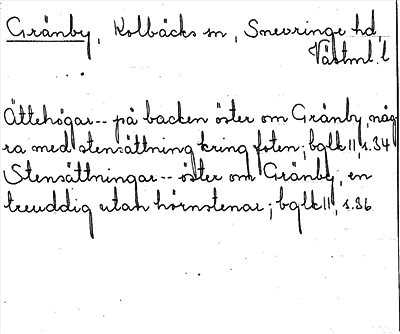 Gränby, Kolbäcks sn, Snevringe hd,
Västml. l
Ättehögar-- på backen öster om Gränby, någ
ra med stensättning kring foten; bglk II, s.34
Stensättningar-- öster om Gränby, en
treuddig utan hörnstenar; bglk II, s.36